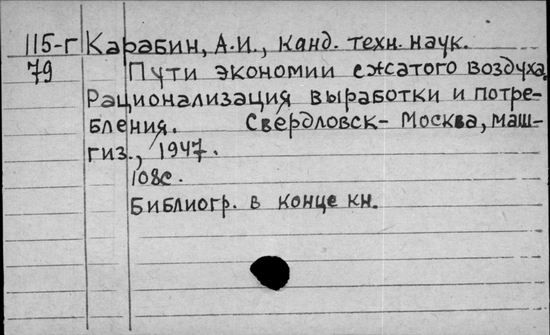 115-г Карабин, А.И., канд. техн. наук.
79 Пути экономии сжатого воздуха.
Рационализация выработки и потре-
бления. Свердловск- Москва, маш-
гиз., 1947.
108с.
Библиогр. в конце кн.